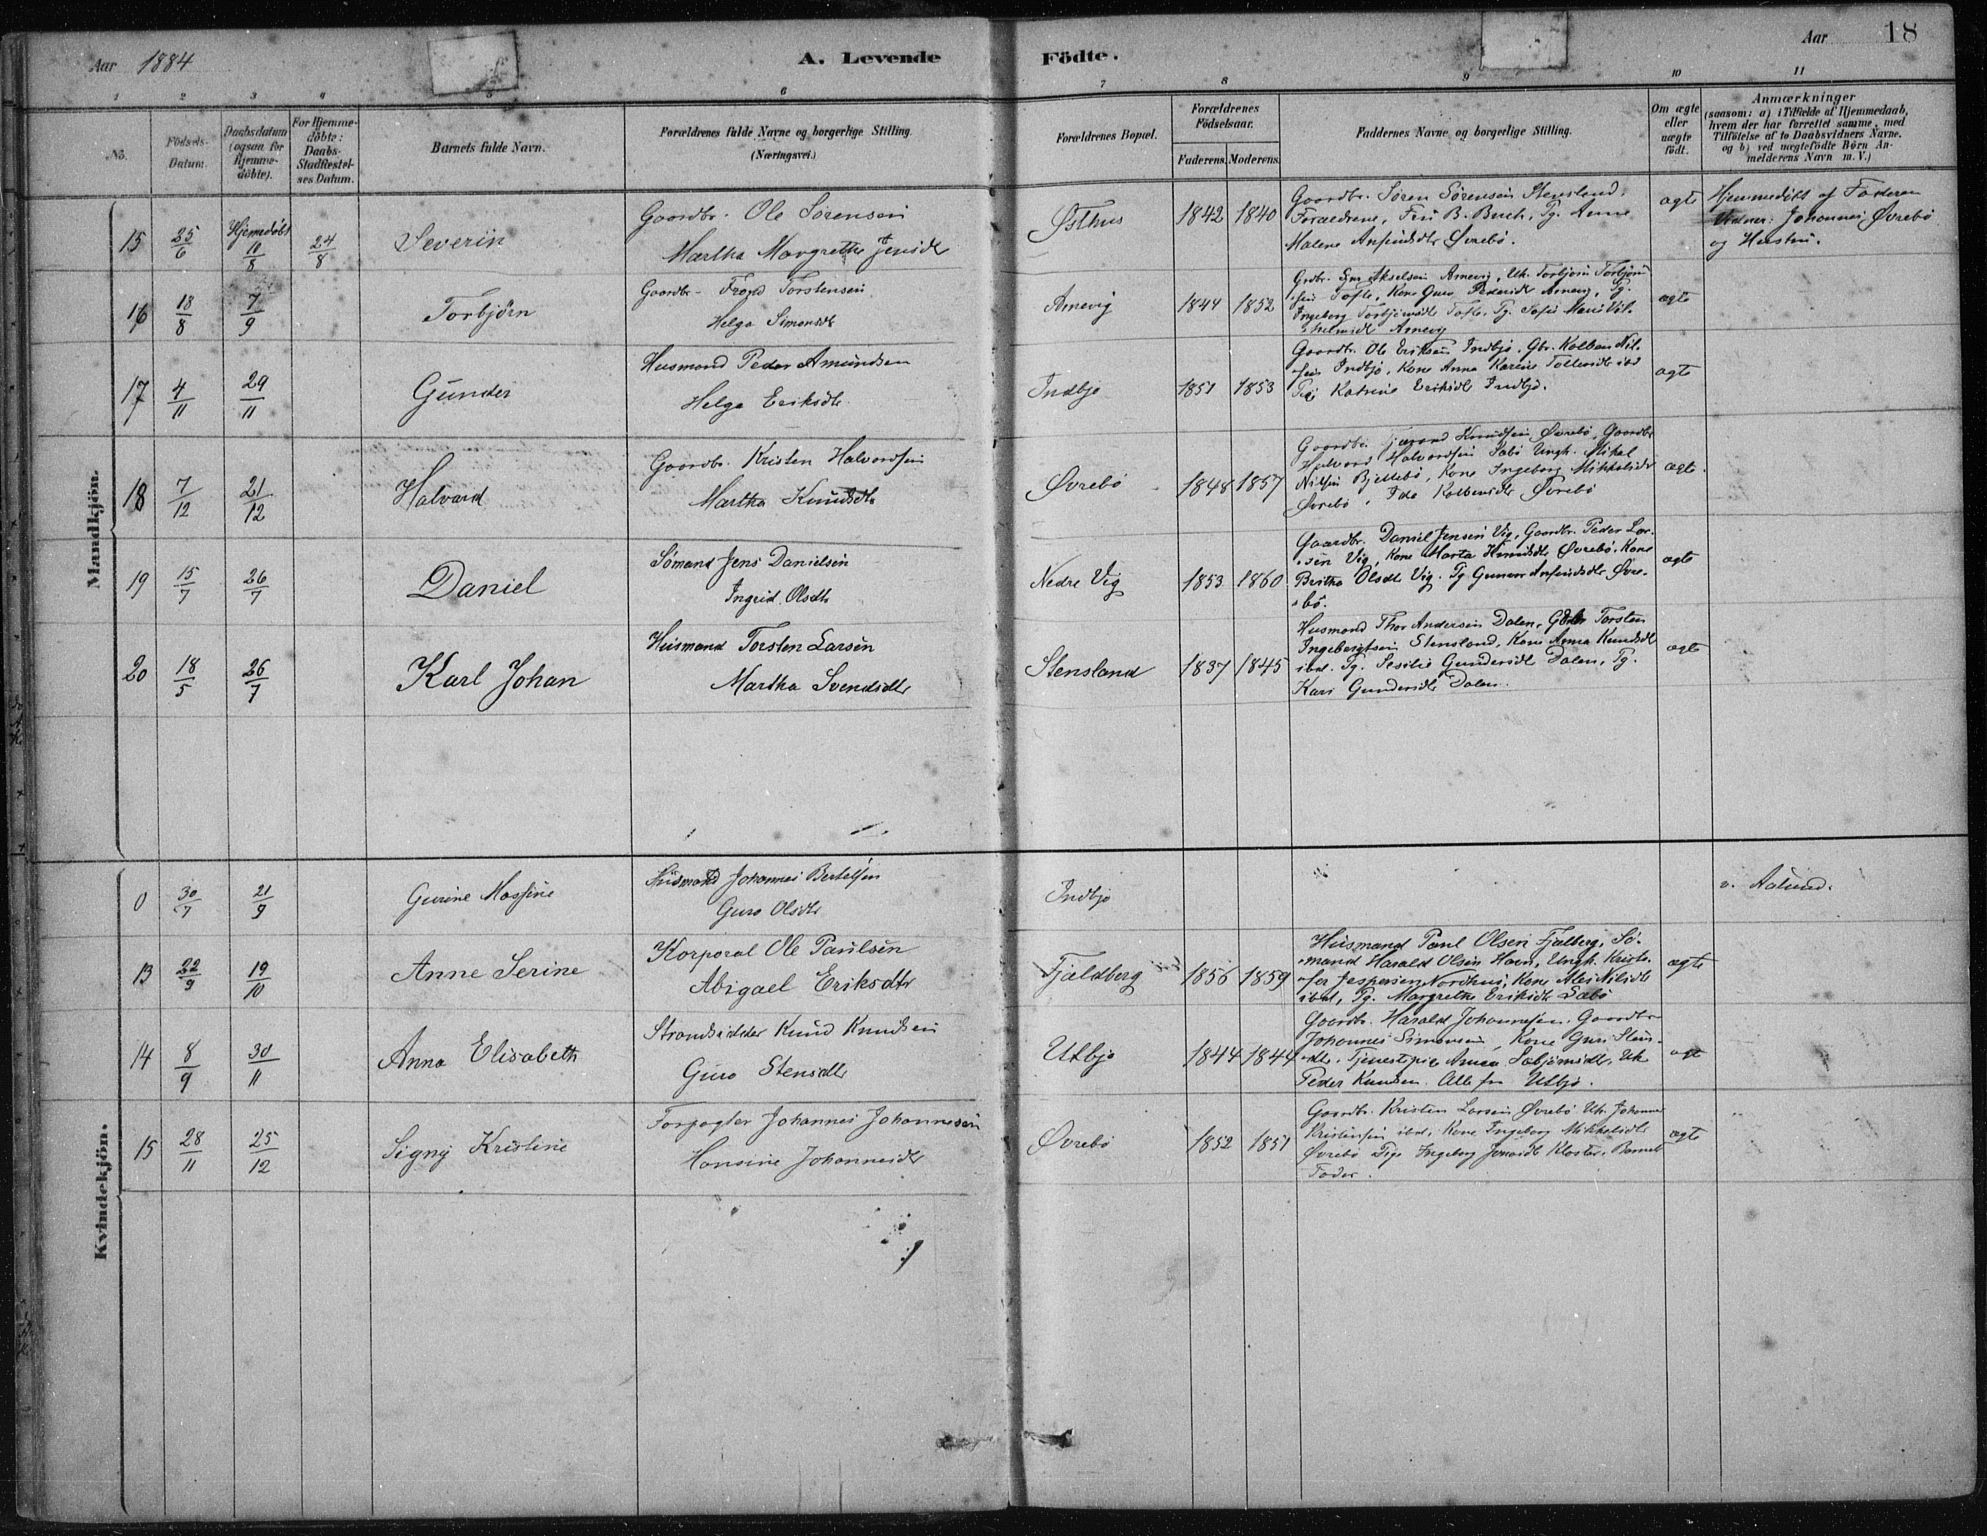 Aar 1884
A. Levende Födte.
Aar 18
1 2 3 4 5 6 7 8 9 10 11
No.
Födsels-Datum.
Daabsdatum (ogsaa for Hjemme-döbte).
For Hjemme-döbte: Daabs-Stadfæstel-ses Datum.
Barnets fulde Navn.
Forældrenes fulde Navne og borgerlige Stilling.
(Næringsvei.)
Forældrenes Bopæl.
Forældrenes Födselsaar.
Faderens. Moderens.
Faddernes Navne og borgerlige Stilling.
Om ægte eller uægte födt.
Anmærkninger
(saasom: a) i Tilfælde af Hjemmedaab,
hvem der har forrettet samme, med
Tilföielse af to Daabsvidners Navne,
og b) ved uægtefödte Börn An-
melderens Navn m. V.)
Mandkjön.
15 25/6 Hjemedöbt 10/8 24/8 Severin
Gaardbr. Ole Sørensen
Martha Margrethe Jensdtr
Østhus 1842 1840
Gaardbr. Søren Sørensen Stensland,
Forældrene, Fru B. Buch, Pg. Anne
Malene Anfindsdtr Øvrebö.
ægte
Hjemmedöbt af Faderen
Vidner: Johannes Øvrebö
og Hustru.
16 18/8 7/9 Torbjørn
Gaardbr. Torstensen
Helga Simonsdtr
Amevig 1844 1852
Akselsen Amevig, Uk. Torbjörn Torbjörn-
sen Tofte, Kone Guro Pedersdtr Amevig, Pg.
Ingeborg Torbjörnsdtr Tofte, Pg. Sofie Marie Vil-
helmsdtr Amevig
ægte
17 4/11 29/11 Gunder
Husmand Peder Amundsen
Helga Eriksdtr
Indbjo 1851 1853
Gaardbr. Ole Eriksen Indbjo, Gbr. Kolben Nil-
sen Indbjö, Kone Anna Karine Tollevsdtr ibd
Pige Katrine Eriksdtr Indbjo.
ægte
18 7/12 21/12 Halvard
Gaardbr. Kristen Halvordsen
Martha Knudsdtr
Øvrebö 1848 1857
Gaardbr. Knudsen Øvrebö, Gaardbr
Halvord Halvordsen Sabö Ungk. Mikal
Nilsen Bjellebö, Kone Ingeborg Mikkelsdtr
Øvrebö, Ida Kolbensdtr Øvrebö
ægte
19 15/7 26/7 Daniel
Sømand Jens Danielsen
Ingrid Olsdtr
Nedre Vig 1853 1860
Gaardbr. Daniel Jensen Vig, Gaardbr. Peder Lar-
sen Vig, Kone Marta Knudsdtr Øvrebö, Kone
Britha Olsdtr Vig. Pg Gunnor Anfindsdtr Øvre-
bö.
ægte
20 18/5 26/7 Karl Johan
Husmand Torsten Larsen
Martha Svendsdtr
Stensland 1837 1845
Husmand Thor Andersen Dalen, Gbr Torsten
Ingebrigtsen Stensland, Kone Anna Knudsdtr
ibd. Pg. Sesilie Gundersdtr Dalen, Pg.
Kari Gundersdtr Dalen.
ægte
Kvindekjön.
0 30/7 21/9 Gurine Massine
Husmand Johannes Bertelsen
Guro Olsdtr
Indbjo
v. Aalund.
13 22/9 19/10 Anne Serine
Korporal Ole Paulsen
Abigael Eriksdtr
Fjældberg 1856 1859
Husmand Paul Olsen Fjælberg, Sö-
mand Harald Olsen Haen, Ungk. Kristo-
fer Jespersen Nordhus, Kone Alis Nilsdtr
ibd, Pg. Margrethe Eriksdtr Sabö
ægte
14 8/9 30/11 Anna Elisabeth
Strandsidder Knud Knudsen
Guro Stensdtr
Utbjo 1844 1844
Gaardbr. Harald Johannesen, Gaardbr
Johannes Simonsen, Kone Guri Sten-
dtr. Tjenestpie Anna Sabjörnsdtr, Uk
Peder Knudsen. Alle fra Utbjo.
ægt
15 28/11 25/12 Signy Kristine
Forpagter Johannes Johannesen
Hansine Johannesdtr
Øvrebö 1852 1851
Gaardbr. Kristen Larsen Øvrebö Uk. Johannes
Kristensen ibd, Kone Ingeborg Mikkelsdtr
Øvrebö Pige Ingeborg Jonasdtr Kloster, Barnets
Fader.
ægte